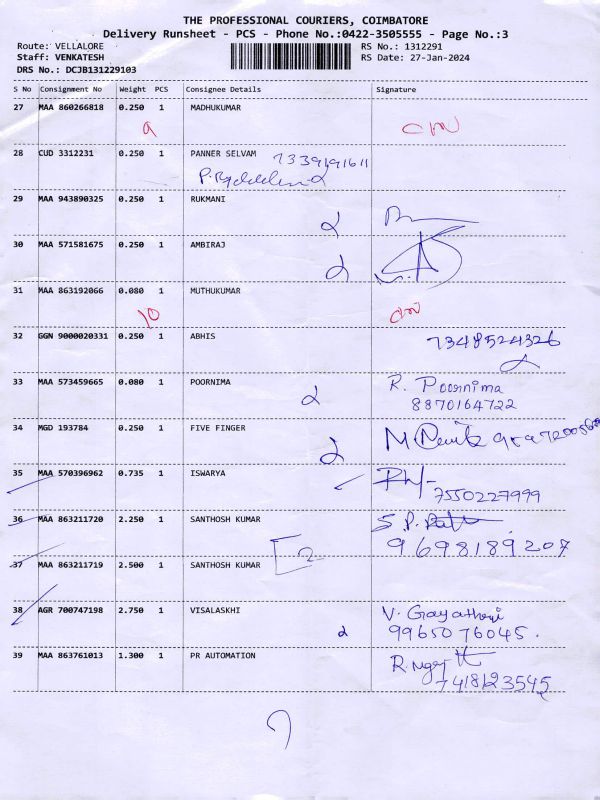 THE PROFESSIONAL COURIERS, COIMBATORE
Delivery Runsheet - PCS - Phone No.:0422-3505555 - Page No.:3
Route: VELLALORE RS No.: 1312291
Staff: VENKATESH RS Date: 27-Jan-2024
DRS No.: DCJB131229103
S No Consignment No Weight PCS Consignee Details Signature
27 MAA 860266818 0.250 1 MADHUKUMAR
9
28 CUD 3312231 0.250 1 PANNER SELVAM 7339191611
29 MAA 943890325 0.250 1 RUKMANI
30 MAA 571581675 0.250 1 AMBIRAJ
31 MAA 863192066 0.080 1 MUTHUKUMAR
10
32 GGN 9000020331 0.250 1 ABHIS 7348524326
33 MAA 573459665 0.080 1 POORNIMA R. Poornima
8870164722
34 MGD 193784 0.250 1 FIVE FINGER
35 MAA 570396962 0.735 1 ISWARYA
7550227999
36 MAA 863211720 2.250 1 SANTHOSH KUMAR S.P.
9698189207
37 MAA 863211719 2.500 1 SANTHOSH KUMAR 2
38 AGR 700747198 2.750 1 VISALASKHI V. Gayathri
9965076045.
39 MAA 863761013 1.300 1 PR AUTOMATION
7418123545